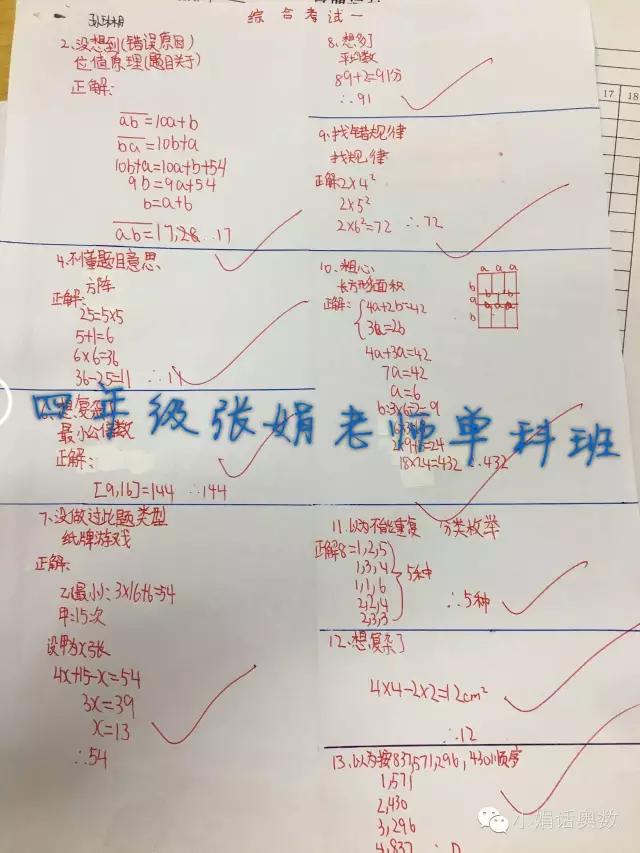 综合考试一
2、没想到(错误原因)
位值原理(题目关于)
正解:
ab=10a+b
ba=10b+a
10b+a=10a+b+54
9b=9a+54
b=a+b
ab=17,28 ∴17
4.不懂题目意思
方阵
正解:
25=5×5
5+1=6
6×6=36
36-25=11 ∴11
想复杂
最小公倍数
正解:
[9,16]=144 ∴144
7、没做过此题类型
纸牌游戏
正解:
乙(最小):3×16+6=54
甲=15次
设甲为x张
4x+15-x=54
3x=39
x=13
∴54
8、想多了
平均数
89+2=91分
∴91
9、找错规律
找规律
正解2×4²
2×5²
2×6²=72 ∴72
10、粗心
长方形面积
正解:
4a+2b=42
3a=2b
4a+3a=42
7a=42
a=6
b=3×6÷2=9
18×24=432 ∴432
a a a
b
a
b
11.以为不能重复 分类枚举
正解8=1,2,5
1,3,4
1,1,6
2,2,4
2,3,3
5种
∴5种
12、想复杂了
4×4-2×2=12cm²
∴12
13、以为按837,571,296,430顺序
1,571
2,430
3,296
4,837 ∴D
四年级张娟老师单科班
17 18
小娟话奥数